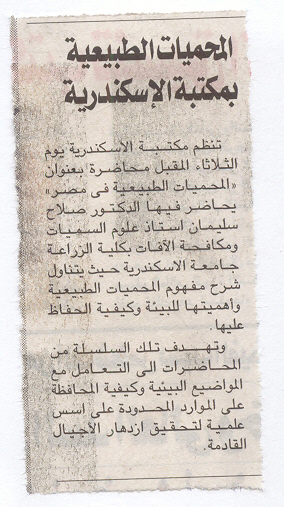 المحميات الطبيعية
بمكتبة الإسكندرية
تنظم مكتبة الاسكندرية يوم
الثلاثاء المقبل محاضرة بعنوان
«المحميات الطبيعية فى مصر»
يحاضر فيها الدكتور صلاح
سليمان استاذ علوم السميات
ومكافحة الآفات بكلية الزراعة
جامعة الاسكندرية حيث يتناول
شرح مفهوم المحميات الطبيعية
وأهميتها للبيئة وكيفية الحفاظ
عليها.
وتهدف تلك السلسلة من
المحاضرات الى التعامل مع
المواضيع البيئية وكيفية المحافظة
على الموارد المحدودة على اسس
علمية لتحقيق ازدهار الأجيال
القادمة.